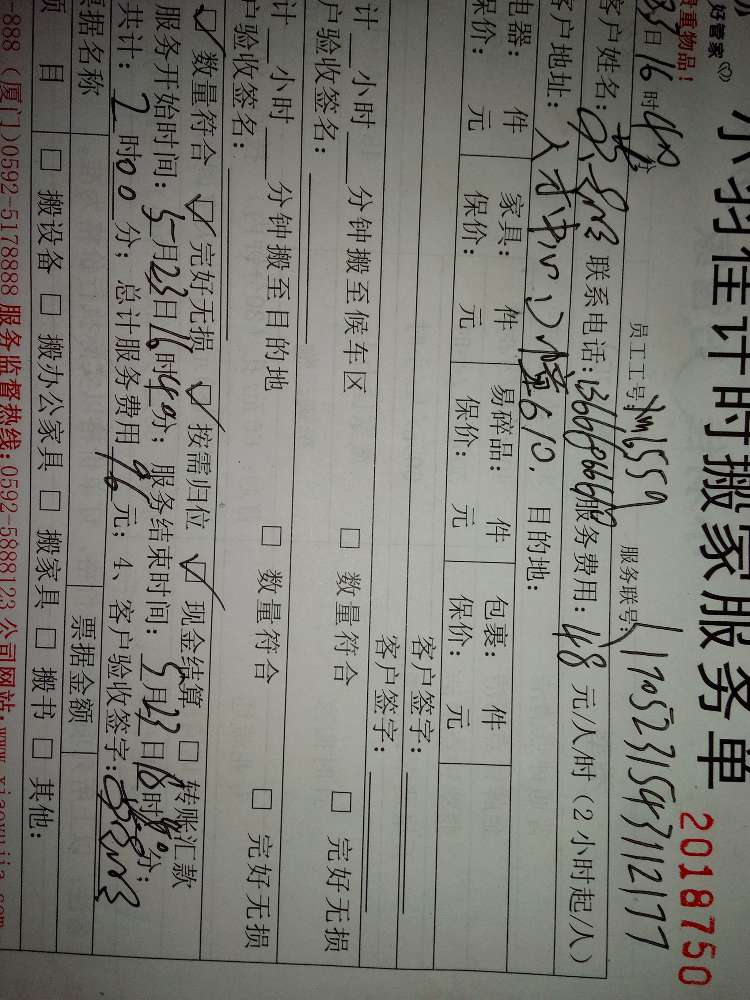 好管家
小羽佳计时搬家服务单
2018750
重物品!
员工工号: xm6559
服务联号: 170523154311217
23日16时40分
客户姓名: 联系电话: 服务费用: 48 元/人/时(2小时起/人)
客户地址: 610. 目的地:
电器: 件 家具: 件 易碎品: 件 包裹: 件
保价: 元 保价: 元 保价: 元 保价: 元
客户签字:
客户签字:
计 小时 分钟搬至候车区 □ 数量符合 □ 完好无损
户验收签名:
计 小时 分钟搬至目的地 □ 数量符合 □ 完好无损
户验收签名:
☑ 数量符合 ☑ 完好无损 ☑ 按需归位 ☑ 现金结算 □ 转账汇款
服务开始时间: 5月23日16时40分; 服务结束时间: 5月23日18时40分;
共计: 2时00分; 总计服务费用 元; 4、客户验收签字:
票据名称 票据金额
项 目 □ 搬设备 □ 搬办公家具 □ 搬家具 □ 搬书 □ 其他:
-888 (厦门)0592-5178888 服务监督热线:0592-5888123 公司网站:www.xiaoyujia.com